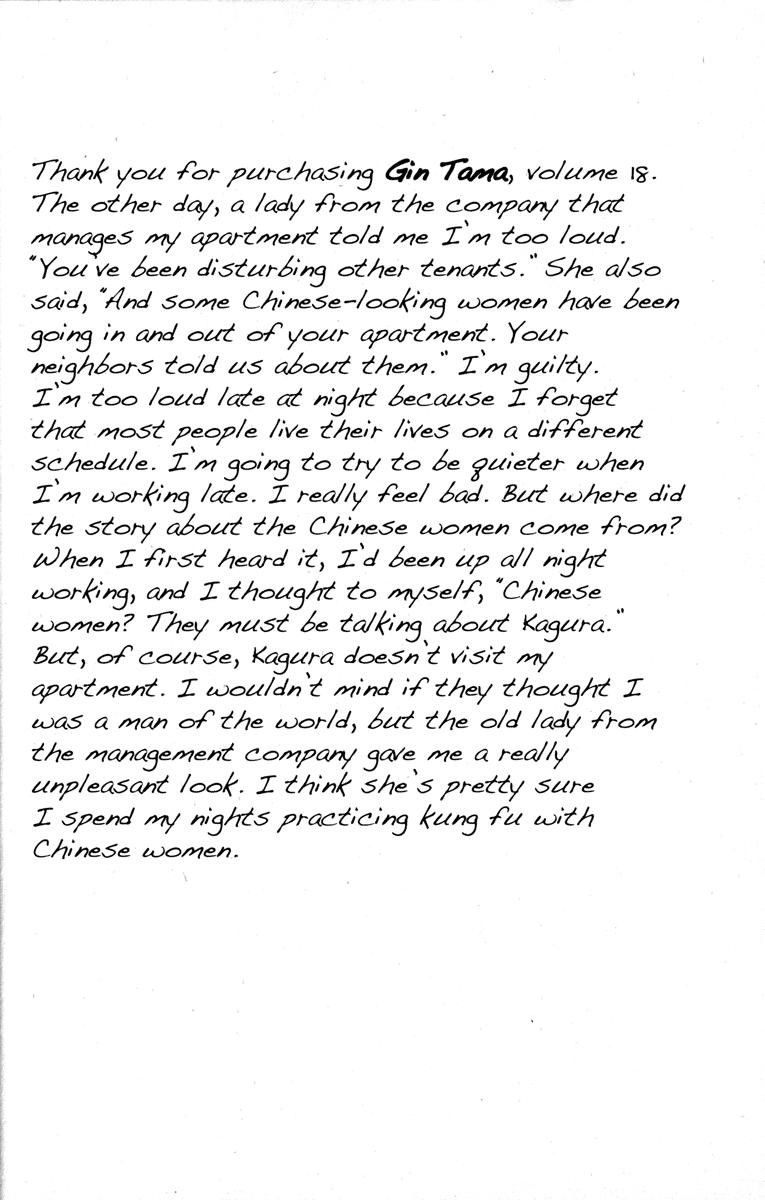 Thank you for purchasing Gin Tama, volume 18.
The other day, a lady from the company that
manages my apartment told me I'm too loud.
"You've been disturbing other tenants." She also
said, "And some Chinese-looking women have been
going in and out of your apartment. Your
neighbors told us about them." I'm guilty.
I'm too loud late at night because I forget
that most people live their lives on a different
schedule. I'm going to try to be quieter when
I'm working late. I really feel bad. But where did
the story about the Chinese women come from?
When I first heard it, I'd been up all night
working, and I thought to myself, "Chinese
women? They must be talking about Kagura."
But, of course, Kagura doesn't visit my
apartment. I wouldn't mind if they thought I
was a man of the world, but the old lady from
the management company gave me a really
unpleasant look. I think she's pretty sure
I spend my nights practicing kung fu with
Chinese women.